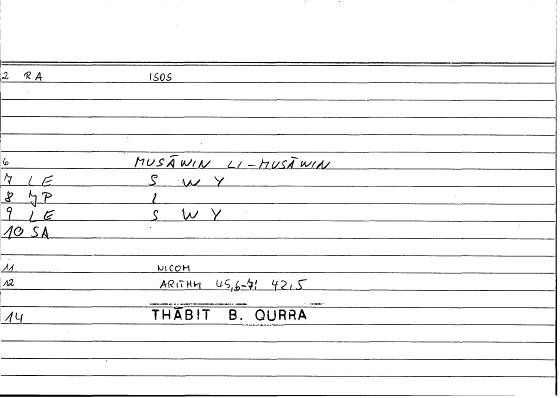 2 RA ISOS
6 MUSĀWIN LI-MUSĀWIN
7 LE S W Y
8 JP L
9 LE S W Y
10 SA
11 NICOM
12 ARITHM 45,6-7! 42,5
14 THĀBIT B. QURRA